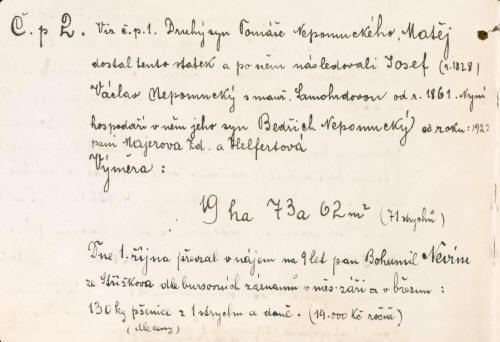 Č. p 2. Viz č.p.1. Druhý syn Tomáše Nepomuckého, Matěj
dostal tento statek a po něm následovali Josef (r.1828)
Václav Nepomucký s manž. Samohrdovou od r. 1861. Nyní
hospodaří v něm jeho syn Bedřich Nepomucký od roku: 192
paní Majerova Zd. a Helfertová
Výměra:
19 ha 73a 62 m² (71 strychů)
Dne 1. října převzal v nájem na 9 let pan Bohumil Nevím
ze Stříškova dle bursovních záznamů v měs. září a v březnu:
130 kg pšenice z 1 strychu a daně. (19.000 Kč ročně)
(dle ceny)